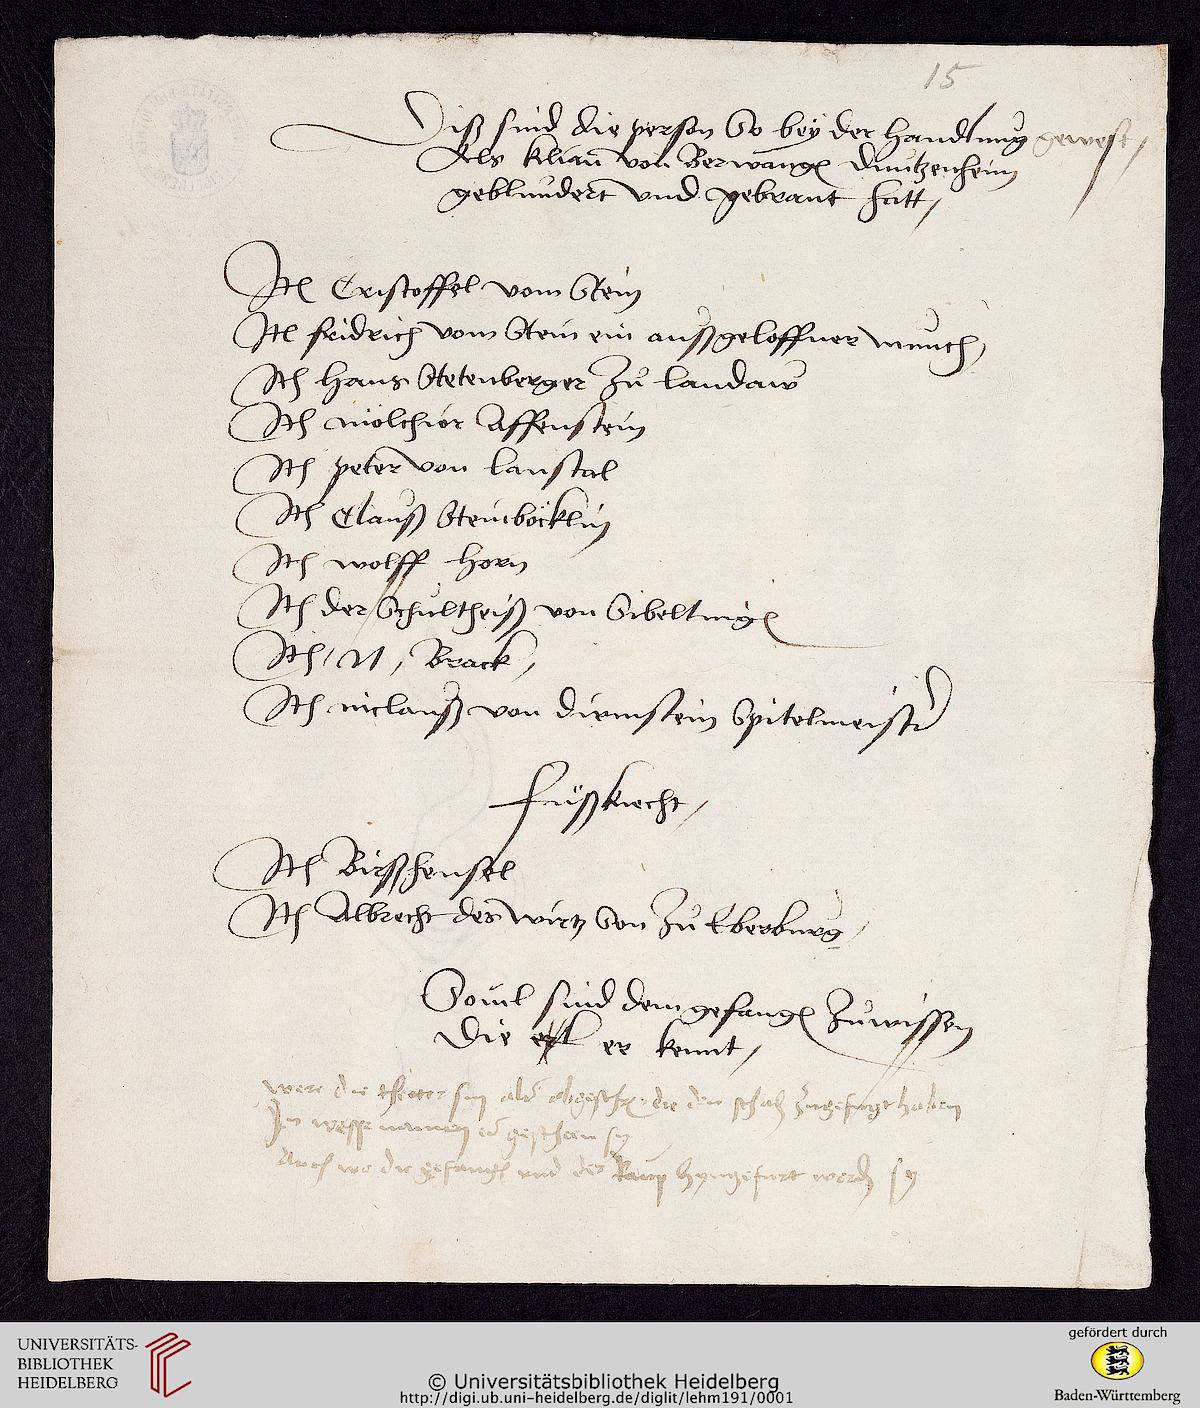 15
Diß sind die person So bey der handlung gewest,
Als kilian von Berwangen Dintzenheim
geblundert vnd gebrant hatt,
Itë Cristoffel vom Stein
Itë fridrich vom Stein ein außgeloffner münch,
Ith hans Stetenberger zu landaw
Ith mölchior Affenstein
Ith peter von lanstal
Ith Clauß Steinböcklin
Ith wolff horn
Ith der Schultheiß von Sibeltingen
Ith, N, Brack,
Ith niclauß von dirmstein Spitelmeister
füßknecht,
Ith Birßhensel
Ith Albrecht des wirtz Son zu Eberburg,
Souil sind dem gefangen zu wissen
Die er kennt,
were die theter sin die den schatz zugefugt haben
In wesse namen es geschen sy
Auch wo die gefangen vnd der Raup hyngefurt werden sy
UNIVERSITÄTS-
BIBLIOTHEK
HEIDELBERG
© Universitätsbibliothek Heidelberg
http://digi.ub.uni-heidelberg.de/diglit/lehm191/0001
gefördert durch
Baden-Württemberg